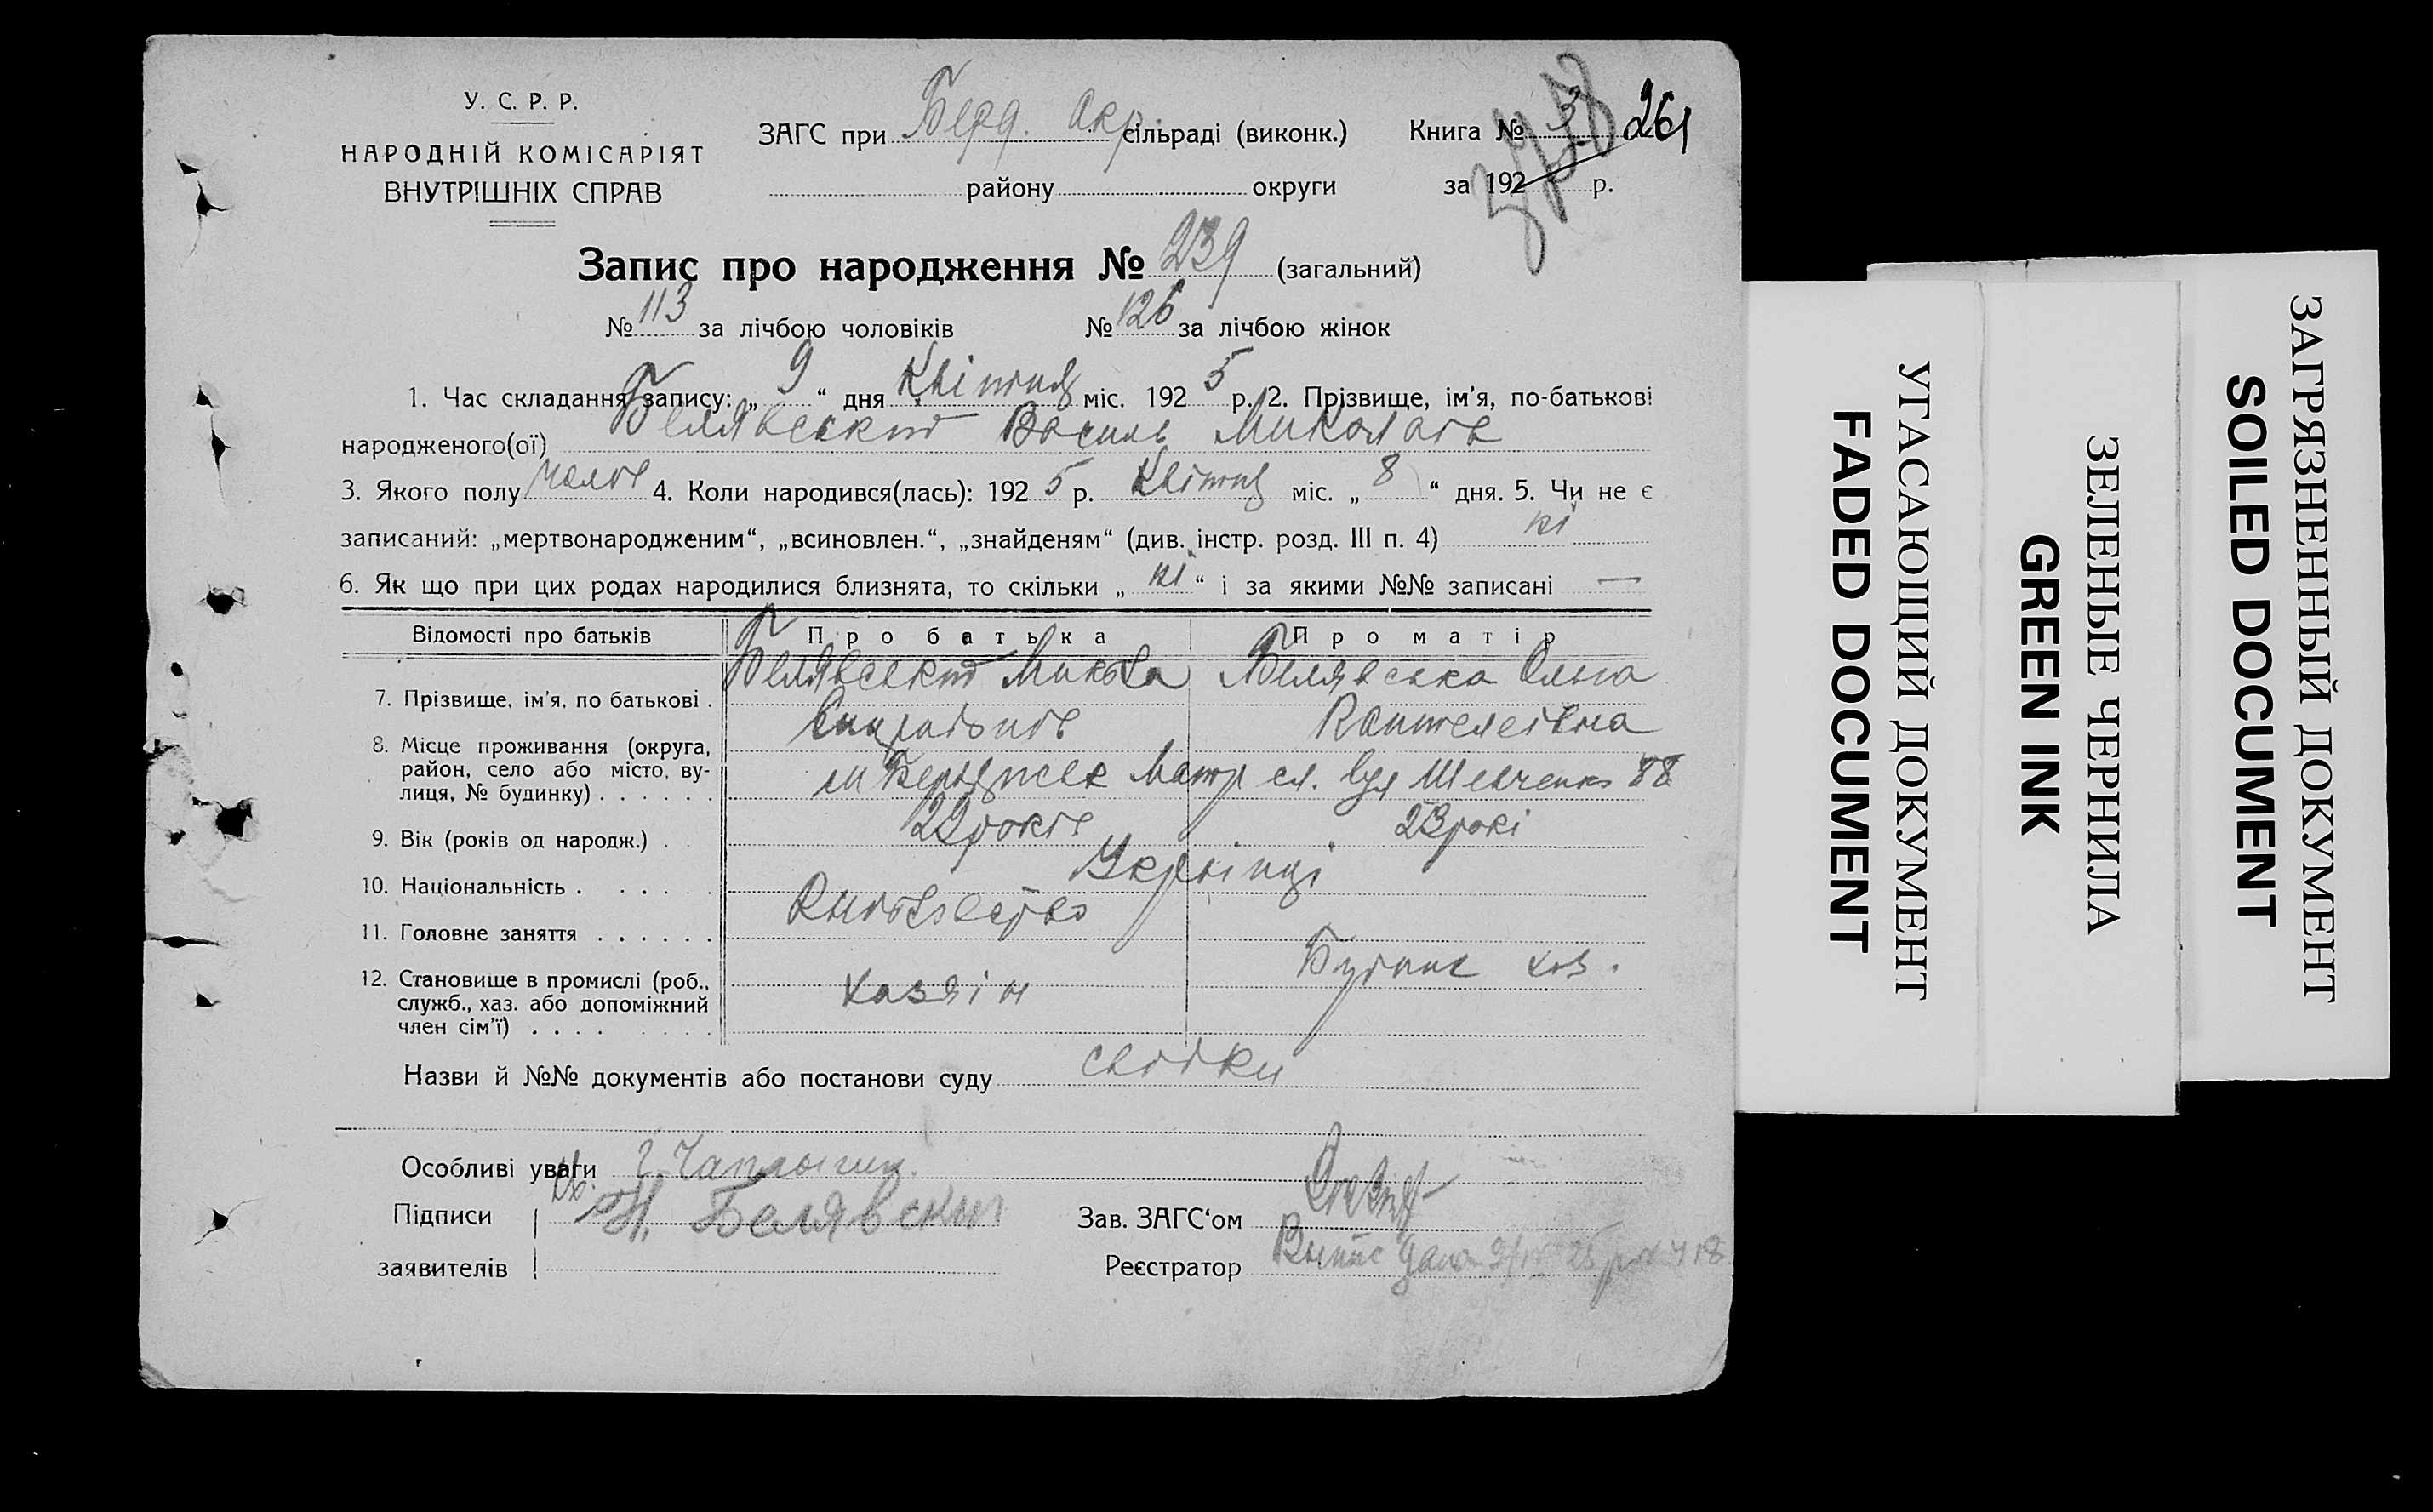 У. С. Р. Р.
НАРОДНІЙ КОМІСАРІЯТ
ВНУТРІШНІХ СПРАВ
ЗАГС при Берд. Окр. сільраді (виконк.)
району округи
Книга № 5 261
за 192 р.
Запис про народження № 239 (загальний)
№ 113 за лічбою чоловіків № 126 за лічбою жінок
1. Час складання запису: „ 9 “ дня Квітня міс. 192 5 р. 2. Прізвище, ім’я, по-батькові
народженого(ої) Белявський Василь Миколаїв
3. Якого полу чолов 4. Коли народився(лась): 192 5 р. Квітня міс. „ 8 “ дня. 5. Чи не є
записаний: „мертвонародженим“, „всиновлен.“, „знайденям“ (див. інстр. розд. III п. 4) ні
6. Як що при цих родах народилися близнята, то скільки „ ні “ і за якими №№ записані —
Відомості про батьків Про батька Про матір
7. Прізвище, ім’я, по батькові . Белявський Микола Белявська Ольга
Пантелеївна
8. Місце проживання (округа,
район, село або місто, ву-
лиця, № будинку) . . . . . . м Бердянськ сл. вул Шевченко 88
9. Вік (років од народж.) . . 22 років 23 рокі
10. Національність . . . . . . Українці
11. Головне заняття . . . . . .
12. Становище в промислі (роб.,
служб., хаз. або допоміжний
член сім’ї) . . . . . . . . хазяін
Назви й №№ документів або постанови суду свідки
Особливі уваги
Підписи Н. Белявский
заявителів
Зав. ЗАГС‘ом
Реєстратор
УГАСАЮЩИЙ ДОКУМЕНТ
FADED DOCUMENT
ЗЕЛЕНЫЕ ЧЕРНИЛА
GREEN INK
ЗАГРЯЗНЕННЫЙ ДОКУМЕНТ
SOILED DOCUMENT